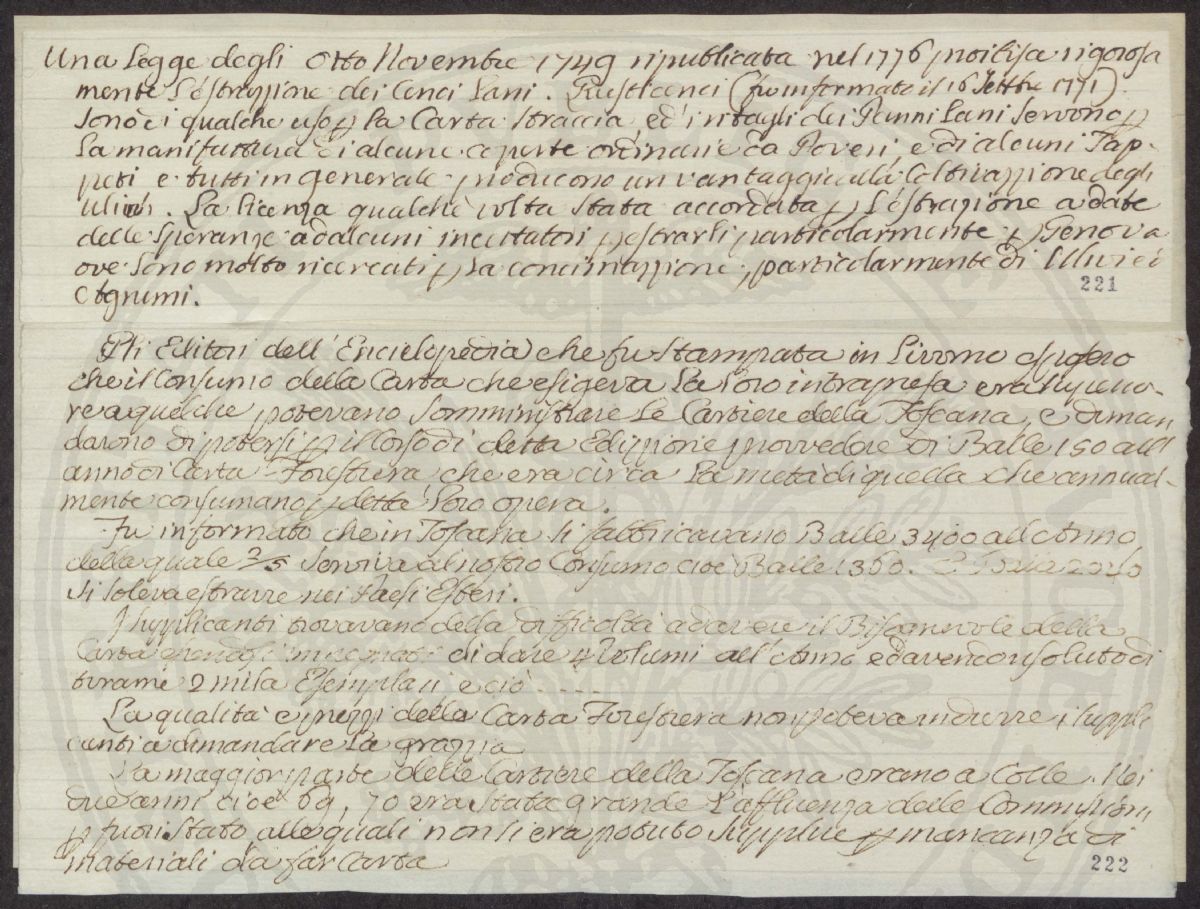 Una Legge degli Otto Novembre 1749 ripublicata nel 1776 proibisa rigorosa
mente l'estrazzione dei Cenci Lani. Questi cenci (fu informato il 16 Settbre 1771)
sono di qualche uso p la Carta straccia, ed i ritagli dei Panni Lani servono p
la manifattura di alcune coperte ordinarie da Poveri, e di alcuni Tap-
peti e tutti in generale producono un vantaggio alla Coltivazzione degli
ulivi. La licenza qualche volta stata accordata p l'estrazione a date
delle speranze ad alcuni incettatori p estrarli particolarmente p Genova
ove sono molto ricercati p la concimazzione, particolarmente di Ulivi ei
Agrumi.
221
Gli Editori dell'Enciclopedia che fu stampata in Livorno esposero
che il Consumo della Carta che esigeva la loro intrapresa era superio-
re a quel che potevano somministrare le Cartiere della Toscana, e diman
darono di potersi p il Corso di detta Edizzione provvedere di Balle 150 all
anno di Carta Forestiera che era circa la metà di quella che annual-
mente consumano p detta loro opera.
Fu informato che in Toscana si fabbricavano Balle 3400 all'Anno
della quale 2/5 serviva al nostro Consumo cioè Balle 1360. Balle 2040
si soleva estrarre nei Paesi Esteri.
I supplicanti trovavano della difficoltà ad avere il Bisognevole della
Carta di dare 4 Volumi all'Anno ed avendo risoluto di
tirarne 2 mila Esemplari e ciò ....
La qualità e prezzi della Carta Forestiera non poteva indurre i suppli
canti a dimandare la grazzia
La maggior parte delle Cartiere della Toscana erano a Colle. Nei
due anni cioè 69, 70 era stata grande l'affluenza delle Commissioni
p fuori stato alle quali non si era potuto supplire p mancanza di
materiali da far Carta
222